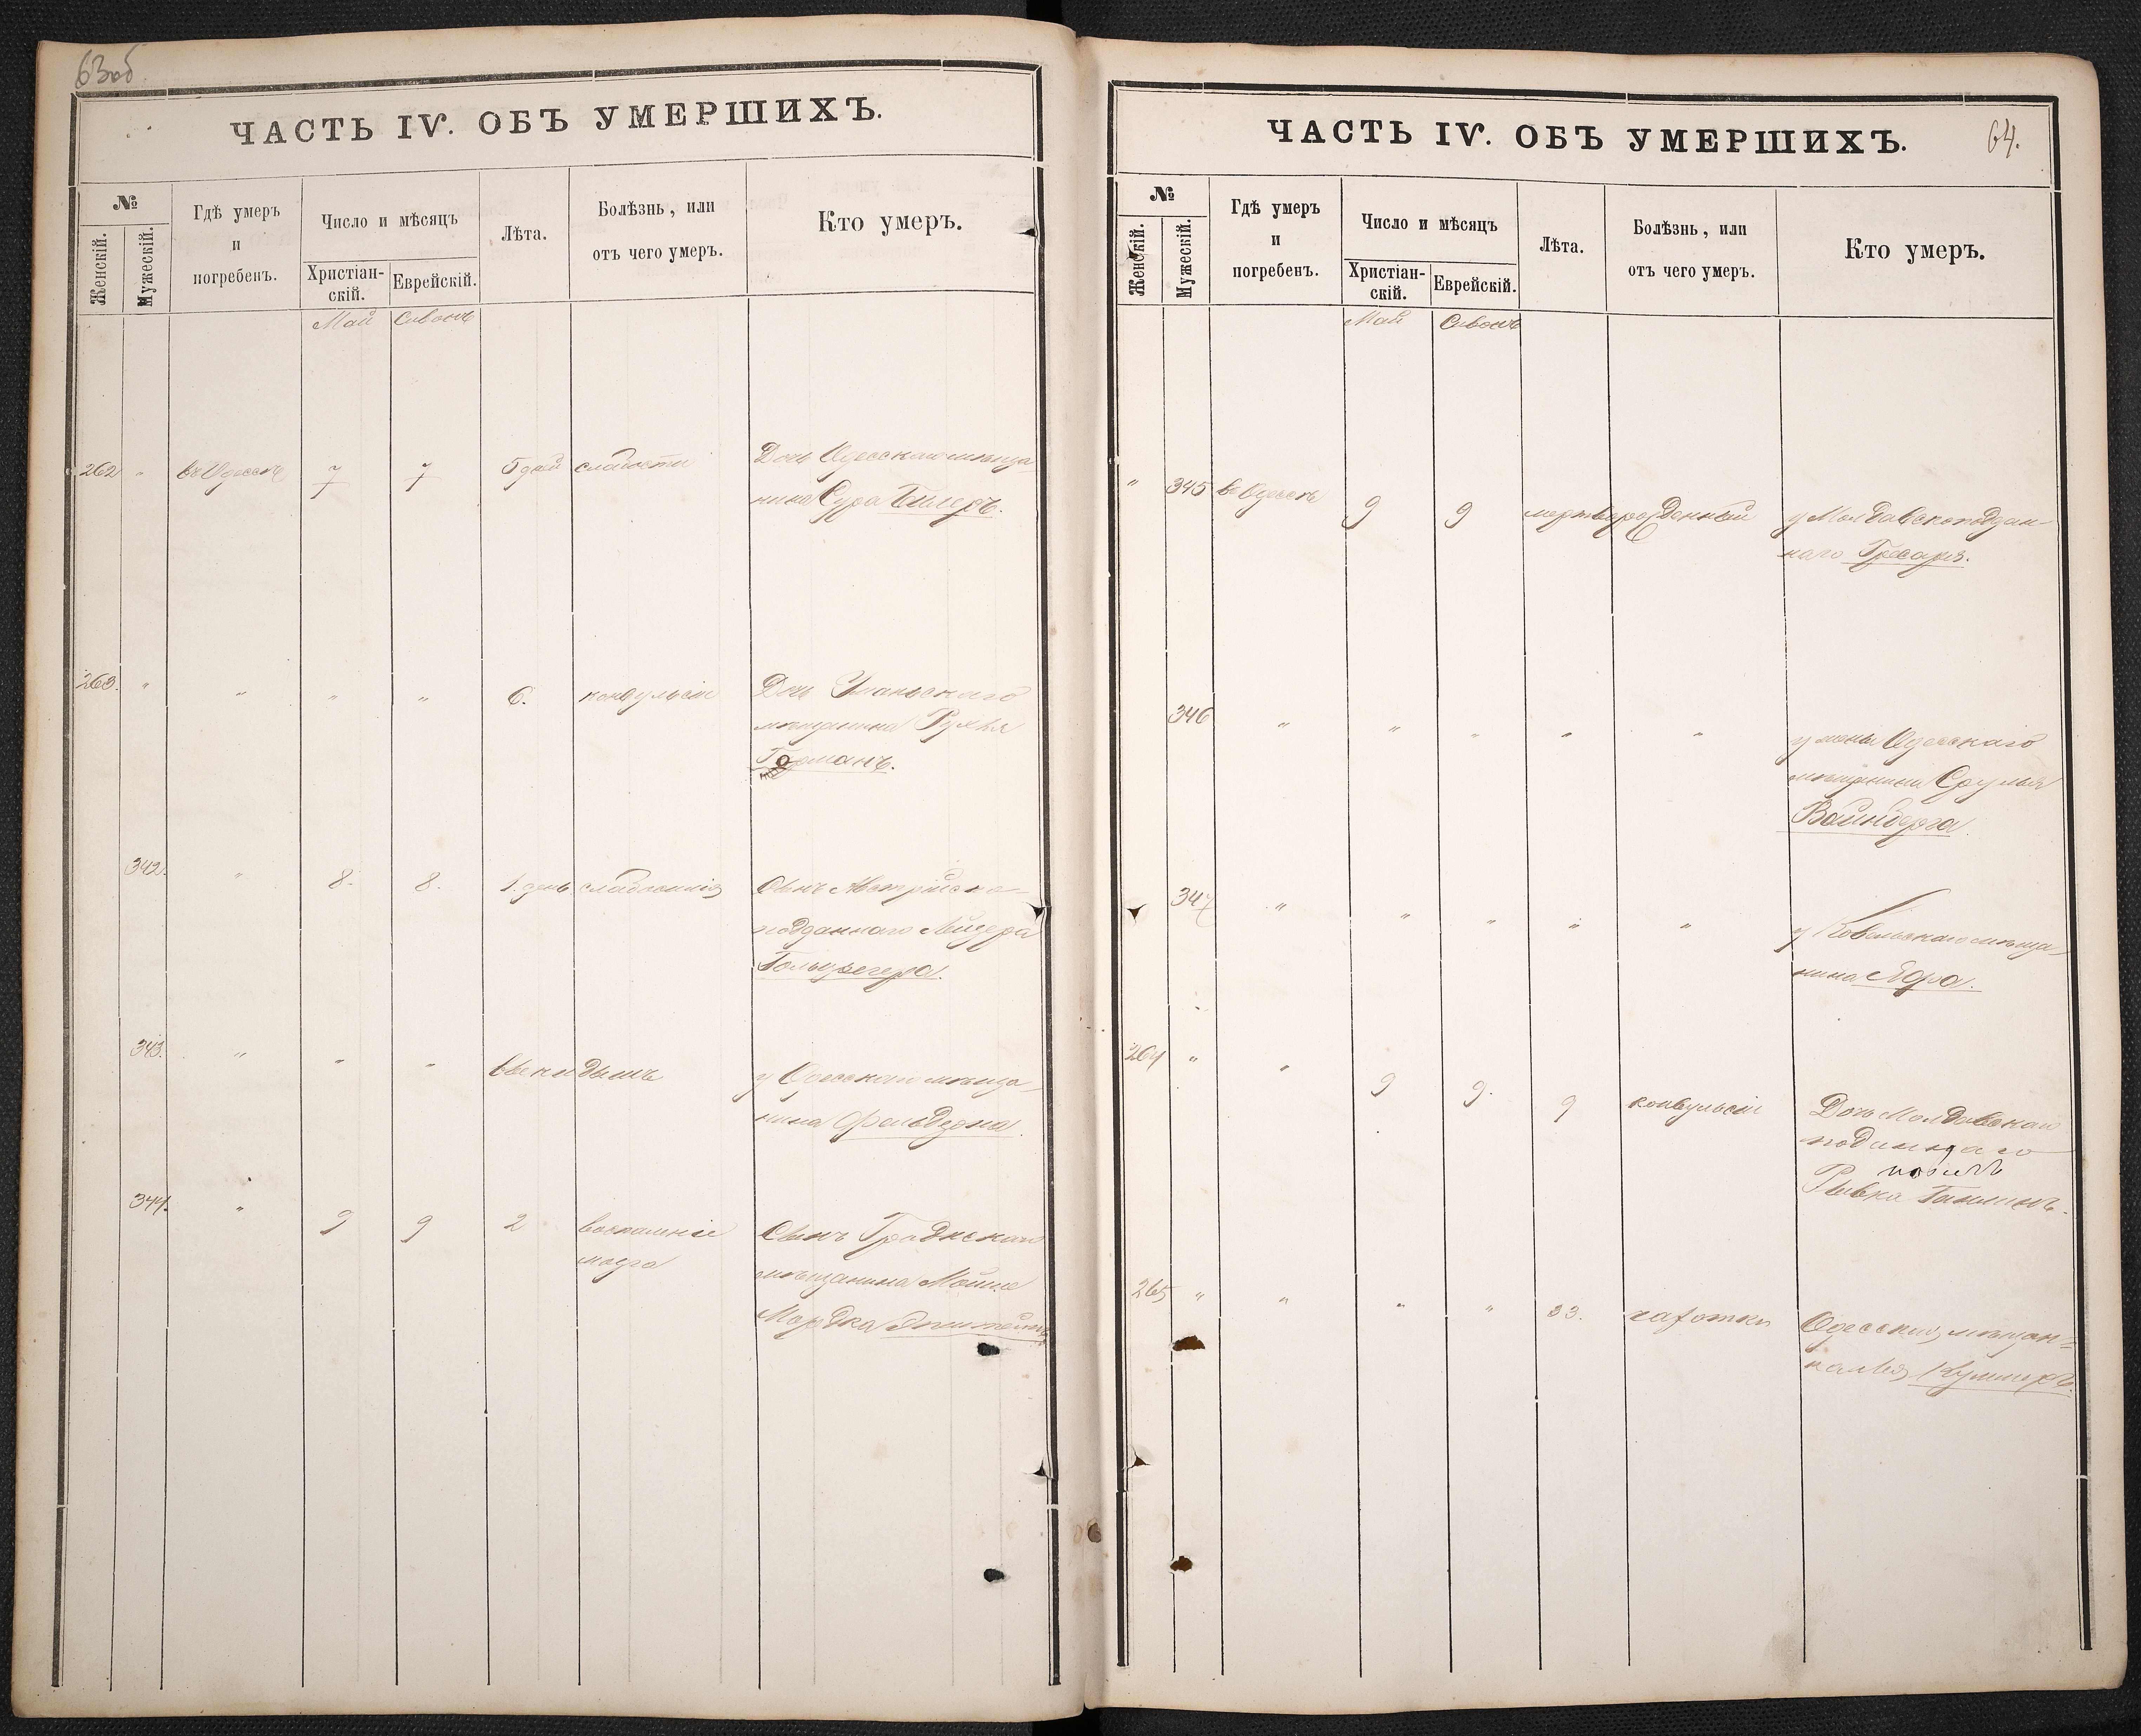 63об.
ЧАСТЬ IV. ОБЪ УМЕРШИХЪ.
№
Женскій.
Мужескій.
Гдѣ умеръ
и
погребенъ.
Число и мѣсяцъ
Христіан-
скій.
Еврейскій.
Лѣта.
Болѣзнь, или
отъ чего умеръ.
Кто умеръ.
Май Сивонъ
262 " въ Одессѣ 7 7 5 дней слабости Дочь Одесскаго мѣща
нина Сура
263. " " " " 6. конвульсіи Дочь Уманьскаго
мѣщанина Рухля
Германъ.
342. " 8. 8. 1. день Сынъ Австрійско-
подданнаго Лейзера
343. " " " выкидышъ у Одесскаго мѣща
нина
344. " 9 9 2 воспаленіе Сынъ
мозга мѣщанина Мойше
Мордка
ЧАСТЬ IV. ОБЪ УМЕРШИХЪ.
64.
№
Женскій.
Мужескій.
Гдѣ умеръ
и
погребенъ.
Число и мѣсяцъ
Христіан-
скій.
Еврейскій.
Лѣта.
Болѣзнь, или
отъ чего умеръ.
Кто умеръ.
Май Сивонъ
" 345 въ Одессѣ 9 9 мертворожденный у Молдавскоподдан-
наго
346 " " " " " у жены Одесскаго
мѣщанина Сруля
Вайнберга.
347 " " " " " у Ковельскаго мѣща
нина
264 " " 9 9. 9 конвульсіи Дочь Молдавскаго
подданнаго
Ривка
265 " " " " 33. чахотки Одесская мѣщан-
ка